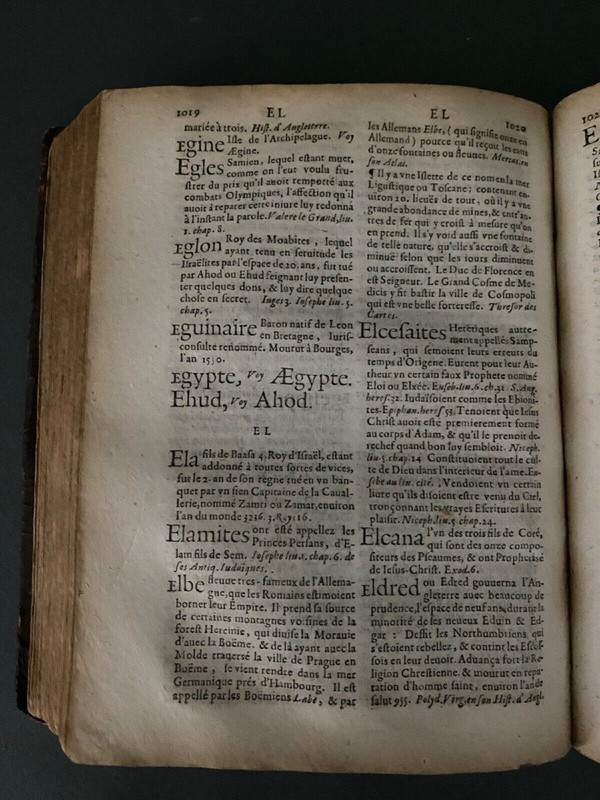 1019 EL
mariée à trois. Hist. d'Angleterre.
Egine Isle de l'Archipelague. Voy
Ægine.
Egles Samien, lequel estant muet,
comme on leut voulu fru-
strer du prix qu'il auoit remporté aux
combats Olympiques, l'affection qu'il
auoit à reparer cette iniure luy redonna
à l'instant la parole. Valere le Grand, liu.
1. chap. 8.
Eglon Roy des Moabites, lequel
ayant tenu en seruitude les
Israëlites par l'espace de 20. ans, fut tué
par Ahod ou Ehud feignant luy presen-
ter quelques dons, & luy dire quelque
chose en secret. Iuges 3. Iosephe liu. 5.
chap. 5.
Eguinaire Baron natif de Leon
en Bretagne, Iuris-
consulte renommé. Mourut à Bourges,
l'an 1550.
Egypte, Voy Ægypte.
Ehud, voy Ahod.
EL
Ela fils de Baasa 4. Roy d'Israël, estant
addonné à toutes sortes de vices,
fut le 2. an de son regne tué en vn ban-
quet par vn sien Capitaine de la Caual-
lerie, nommé Zamri ou Zamar, enuiron
l'an du monde 3236. 3. Roys 16.
Elamites ont esté appellez les
Princes Persans, d'E-
lam fils de Sem. Iosephe liu. 1. chap. 6. de
ses Antiq. Iudaïques.
Elbe fleuue tres-fameux de l'Allema-
gne, que les Romains estimoient
borner leur Empire. Il prend sa source
de certaines montagnes voisines de la
forest Hercinie, qui diuise la Morauie
d'auec la Boëme, & de là ayant auec la
Molde trauersé la ville de Prague en
Boëme, se vient rendre dans la mer
Germanique prés d'Hambourg. Il est
appellé par les Boëmiens Labe, & par
EL 1020
les Allemans Elbe, (qui signifie onze en
Allemand) pource qu'il reçoit les eaux
d'onze fontaines ou fleuues. Mercat. en
son Atlas.
¶ Il y a vne Islette de ce nom en la mer
Ligustique ou Toscane; contenant en-
uiron 20. lieuës de tour, où il y a vne
grande abondance de mines, & entr'au-
tres de fer qui y croist à mesure qu'on
en prend. Il s'y void aussi vne fontaine
de telle nature, qu'elle s'accroist & di-
minuë selon que les iours diminuent
ou accroissent. Le Duc de Florence en
est Seigneur. Le Grand Cosme de Me-
dicis y fit bastir la ville de Cosmopoli
qui est vne belle forteresse. Thresor des
Cartes.
Elcesaites Heretiques autre-
ment appellés Samp-
seans, qui semoient leurs erreurs du
temps d'Origene. Eurent pour leur Au-
theur vn certain faux Prophete nommé
Eloi ou Elxée. Euseb. liu. 6. ch. 31. S. Aug.
heres. 32. Iudaïsoient comme les Ebioni-
tes. Epiphan. heres 53. Tenoient que Iesus
Christ auoit esté premierement formé
au corps d'Adam, & qu'il le prenoit de-
rechef quand bon luy sembloit. Niceph.
liu. 5. chap. 24 Constituoient tout le cul-
te de Dieu dans l'interieur de l'ame. Eu-
sebe au liu. cité. Vendoient vn certain
liure qu'ils disoient estre venu du Ciel,
tronçonnant les vrayes Escritures à leur
plaisir. Niceph. liu. 5 chap. 24.
Elcana l'vn des trois fils de Coré,
qui sont des onze compo-
siteurs des Pseaumes, & ont Prophetisé
de Iesus-Christ. Exod. 6.
Eldred ou Edred gouuerna l'An-
gleterre auec beaucoup de
prudence, l'espace de neuf ans, durant la
minorité de ses neueux Eduin & Ed-
gar: Desfit les Northumbriens qui
s'estoient rebellez, & contint les Escos-
sois en leur deuoir. Aduança fort la Re-
ligion Chrestienne. & mourut en repu-
tation d'homme saint, enuiron l'an de
salut 955. Polyd. Virg. en son Hist. d'Angl.